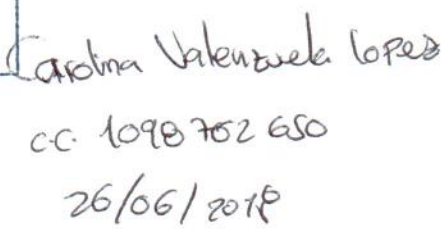 Carolina Valenzuela Lopez
c.c. 1098 702 650
26/06/2018